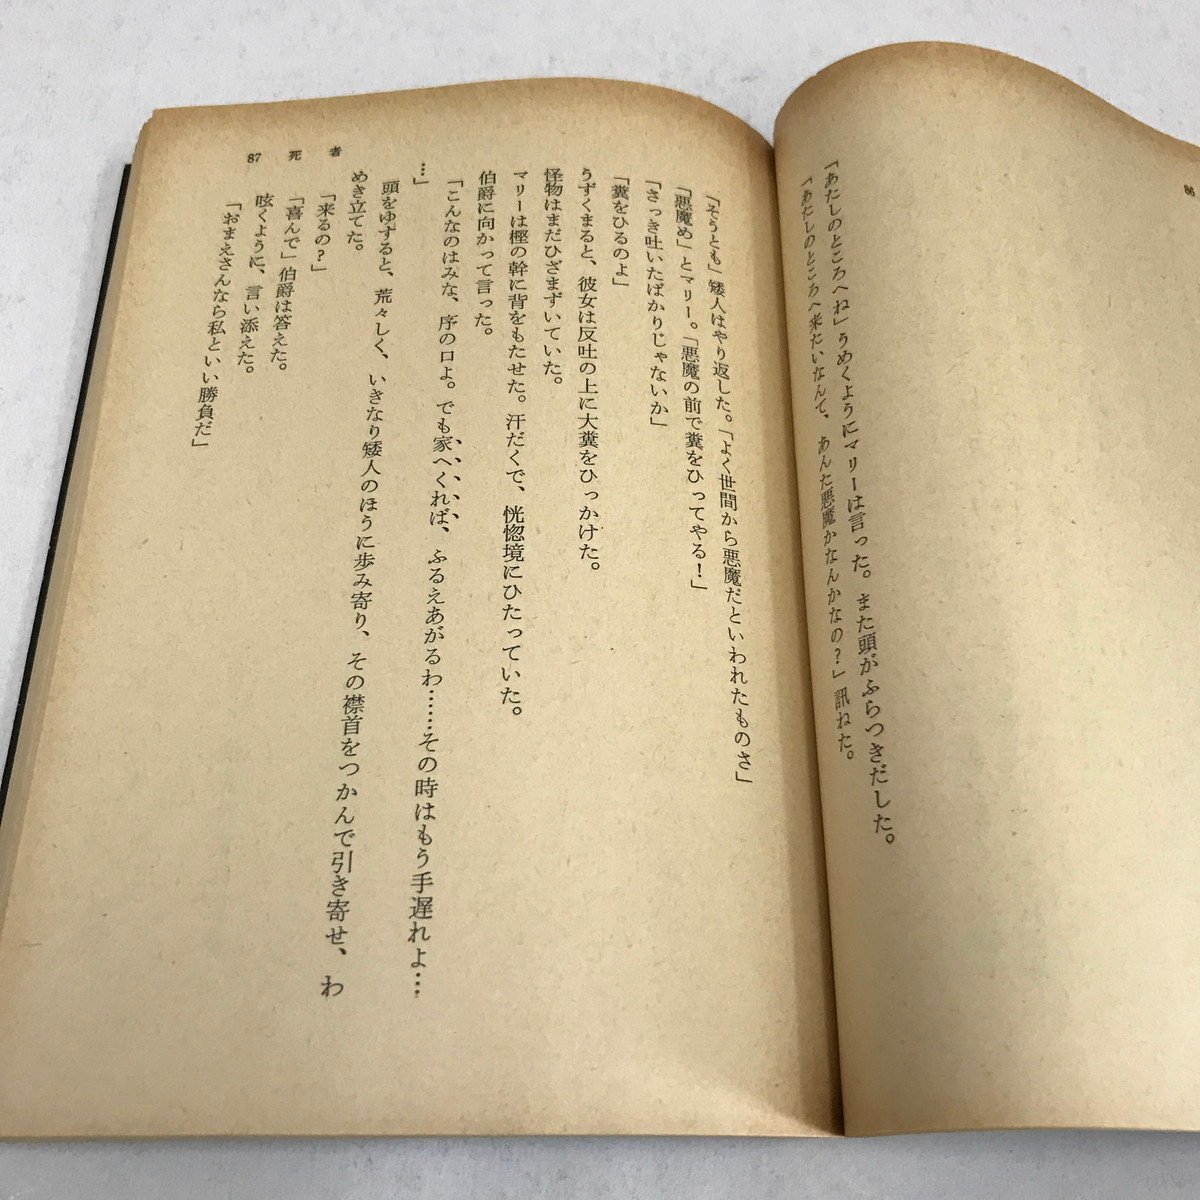 86
「あたしのところへね」うめくようにマリーは言った。また頭がふらつきだした。
「あたしのところへ来たいなんて、あんた悪魔かなんかなの?」訊ねた。
87 死者
「そうとも」矮人はやり返した。「よく世間から悪魔だといわれたものさ」
「悪魔め」とマリー。「悪魔の前で糞をひってやる!」
「さっき吐いたばかりじゃないか」
「糞をひるのよ」
うずくまると、彼女は反吐の上に大糞をひっかけた。
怪物はまだひざまずいていた。
マリーは樫の幹に背をもたせた。汗だくで、恍惚境にひたっていた。
伯爵に向かって言った。
「こんなのはみな、序の口よ。でも家へくれば、ふるえあがるわ……その時はもう手遅れよ…
…」
頭をゆすると、荒々しく、いきなり矮人のほうに歩み寄り、その襟首をつかんで引き寄せ、わ
めき立てた。
「来るの?」
「喜んで」伯爵は答えた。
呟くように、言い添えた。
「おまえさんなら私といい勝負だ」